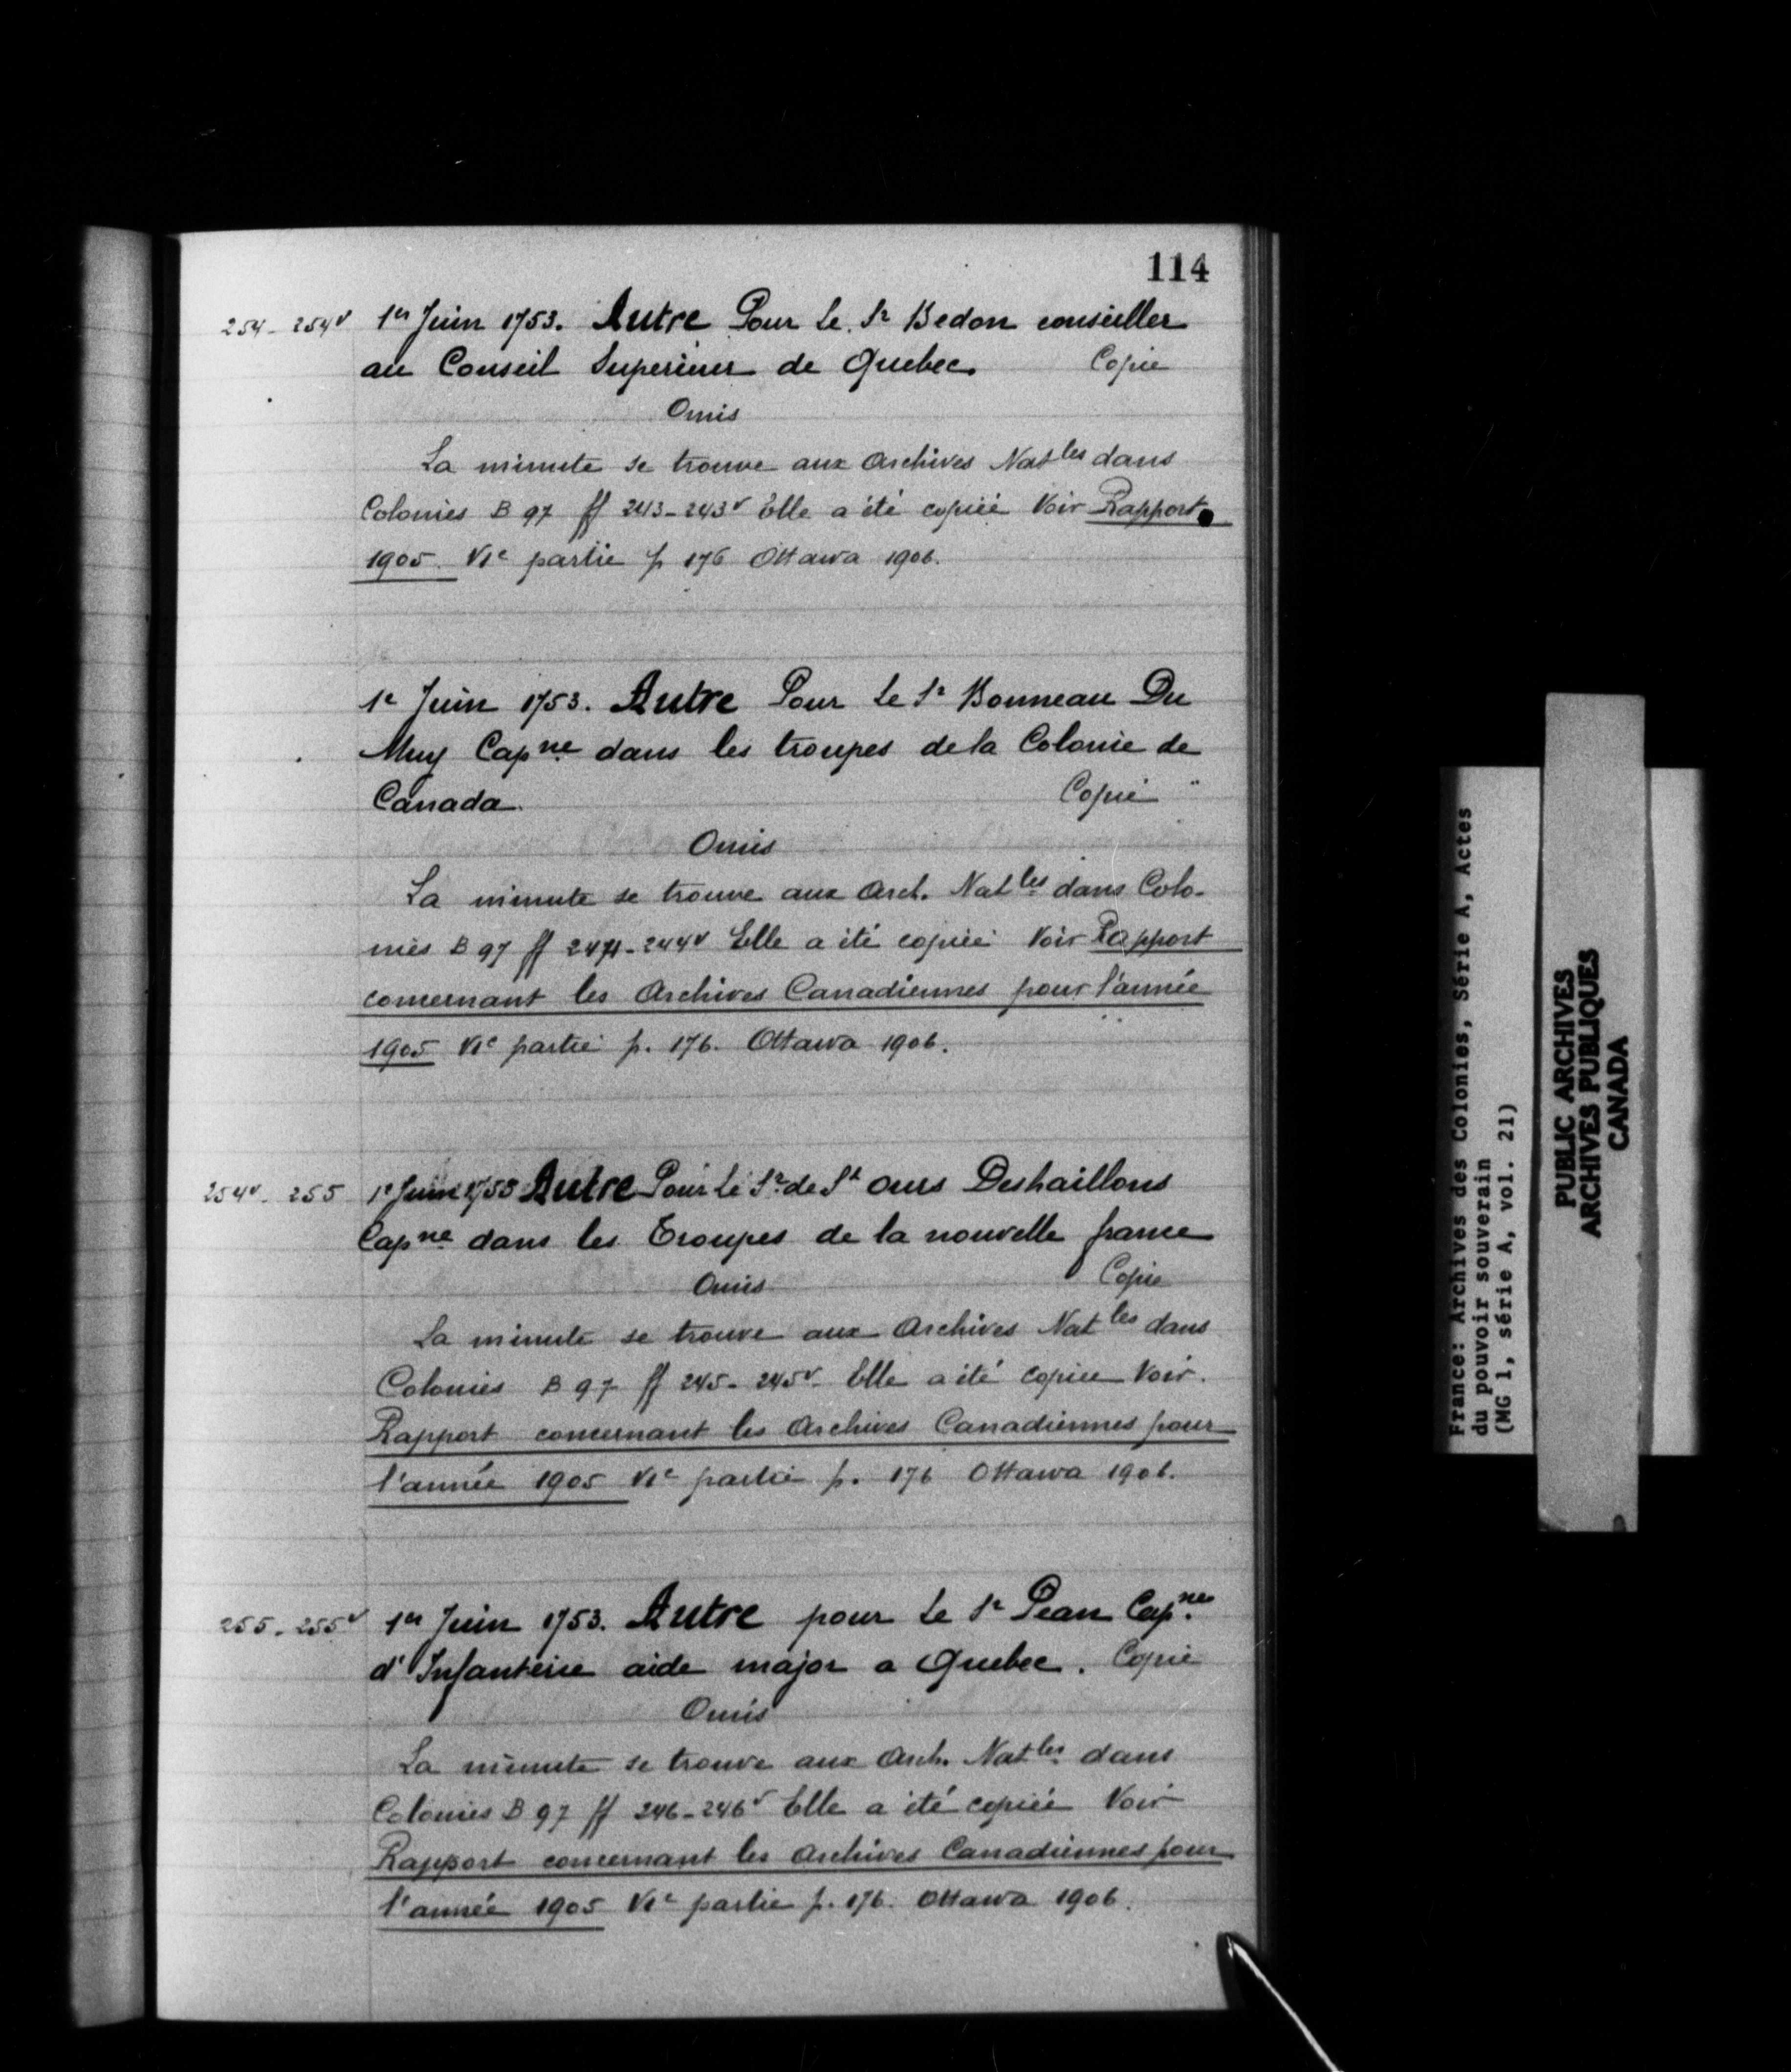 114
254 - 254v 1er Juin 1753. Autre Pour Le Sr Bedon conseiller
au Conseil Superieur de Quebec. Copie
Omis
La minute se trouve aux Archives Natles dans
Colonies B 97 ff 243-243v Elle a été copiée Voir Rapport
1905. VIe partie p 176 Ottawa 1906.
1e Juin 1753. Autre Pour Le Sr Bonneau Du
Muy Capne dans les troupes de la Colonie de
Canada. Copie
Omis
La minute se trouve aux Arch. Natles dans Colo-
nies B 97 ff 244-244v Elle a été copiée Voir Rapport
concernant les Archives Canadiennes pour l'année
1905 VIe partie p. 176. Ottawa 1906.
254v - 255 1e Juin 1753 Autre Pour Le Sr de St Ours Deshaillons
Capne dans les Troupes de la nouvelle france
Omis Copie
La minute se trouve aux Archives Natles dans
Colonies B 97 ff 245-245v Elle a été copiée Voir.
Rapport concernant les Archives Canadiennes pour
l'année 1905 VIe partie p. 176 Ottawa 1906.
255 - 255v 1er Juin 1753. Autre pour Le Sr Pean Capne
d'Infanterie aide major a Quebec. Copie
Omis
La minute se trouve aux Arch. Natles dans
Colonies B 97 ff 246-246v Elle a été copiée Voir
Rapport concernant les Archives Canadiennes pour
l'année 1905 VIe partie p. 176. Ottawa 1906.
France: Archives des Colonies, Série A, Actes
du pouvoir souverain
(MG 1, série A, vol. 21)
PUBLIC ARCHIVES
ARCHIVES PUBLIQUES
CANADA